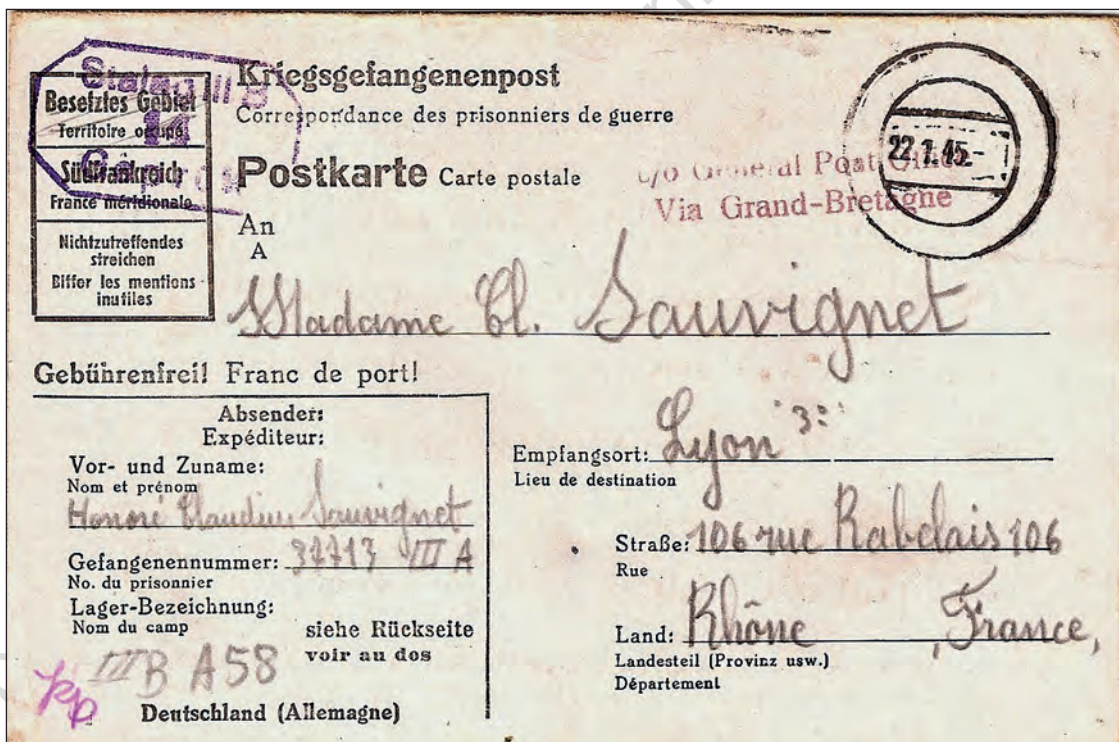 Stalag III B
14
Geprüft
Besetztes Gebiet
Territoire occupé
Südfrankreich
France méridionale
Nichtzutreffendes
streichen
Biffer les mentions
inutiles
Kriegsgefangenenpost
Correspondance des prisonniers de guerre
Postkarte Carte postale
c/o General Post Office
Via Grand-Bretagne
22.1.45.-
An
A
Madame Cl. Sauvignet
Gebührenfrei! Franc de port!
Absender:
Expéditeur:
Vor- und Zuname:
Nom et prénom
Honoré Claudius Sauvignet
Gefangenennummer: 37713 III A
No. du prisonnier
Lager-Bezeichnung:
Nom du camp
siehe Rückseite
voir au dos
III B A58
Deutschland (Allemagne)
Empfangsort: Lyon 3
Lieu de destination
Straße: 106 rue Rabelais 106
Rue
Land: Rhône, France,
Landesteil (Provinz usw.)
Département